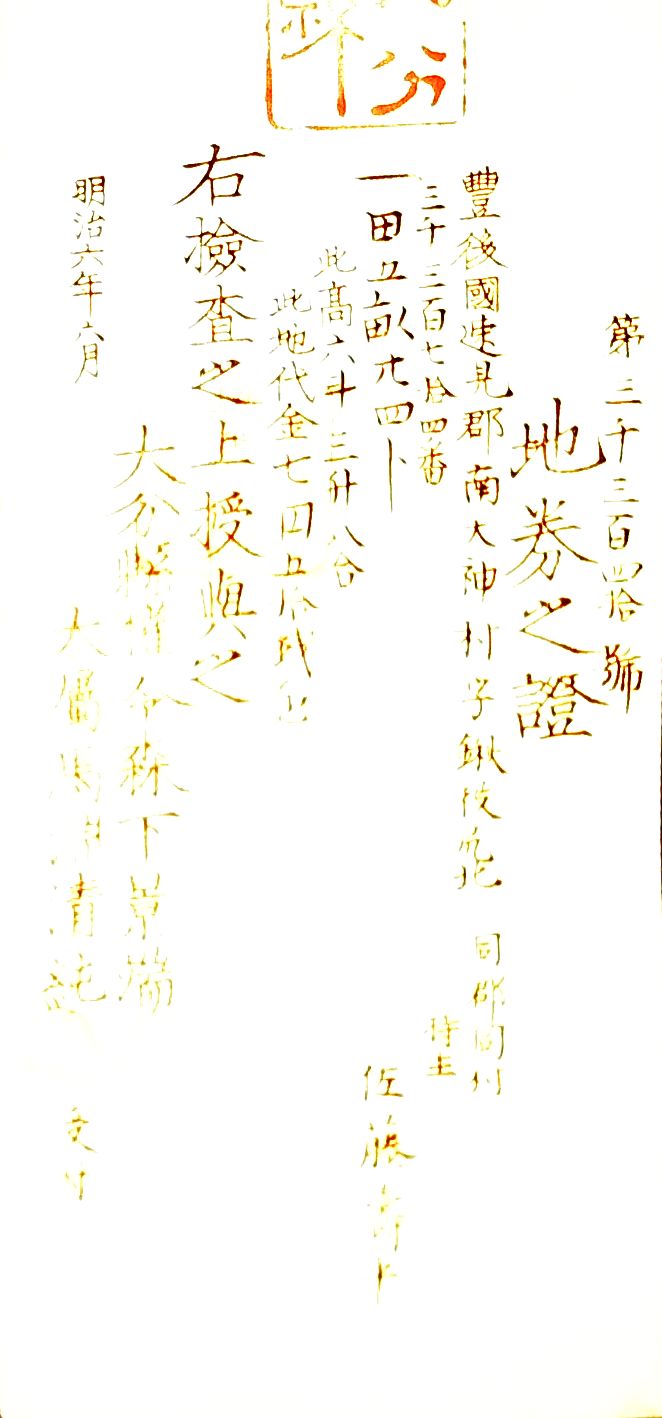 第三千三百四拾號
地券之證
豐後國速見郡南大神村字鍬
同郡同村
三千三百七拾四番
持主
一田五畝廿四卜
佐藤
此高六斗三升八合
此地代金七円五拾銭
右檢査之上授與之
大分縣權令森下景端
明治六年六月
大属馬淵清純